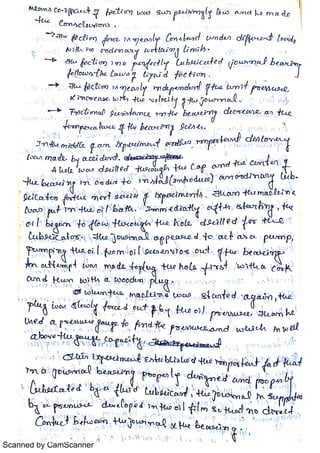 means co-efficient of friction was surprisingly low and he made
the conclusions.
→ The friction force is nearly constant under different loads
within ordinary working limits.
→ The friction in a perfectly lubricated journal bearing
follows the laws of liquid friction.
→ The friction is nearly independent of the unit pressure
& increases with the velocity of the journal.
→ Frictional resistance in the bearing decreases as the
temperature of the bearing
In the middle of an experiment another important discovery
was made by accident.
A hole was drilled through the cap and the center of
the bearing in order to install (introduce) an ordinary lub-
ricator for the next series of experiments. When the machine
was put in the oil bath. Immediately after starting, the
oil began to flow through the hole drilled for the
lubricator. The journal appeared to act as a pump,
pumping the oil from oil reservoirs out of the bearing
An attempt was made to plug the hole first with a cork
and then with a wooden plug.
When the machine was started again, the
plug was slowly forced out by the oil pressure. Then he
used a pressure gauge to find the pressure and which is well
above the gauge capacity.
This Experiment established the important fact that
in a journal bearing properly designed and properly
lubricated by a fluid lubricant, the journal is supported
by a pressure developed in the oil film so that no direct
contact between the journal & the bearing.
Scanned by CamScanner